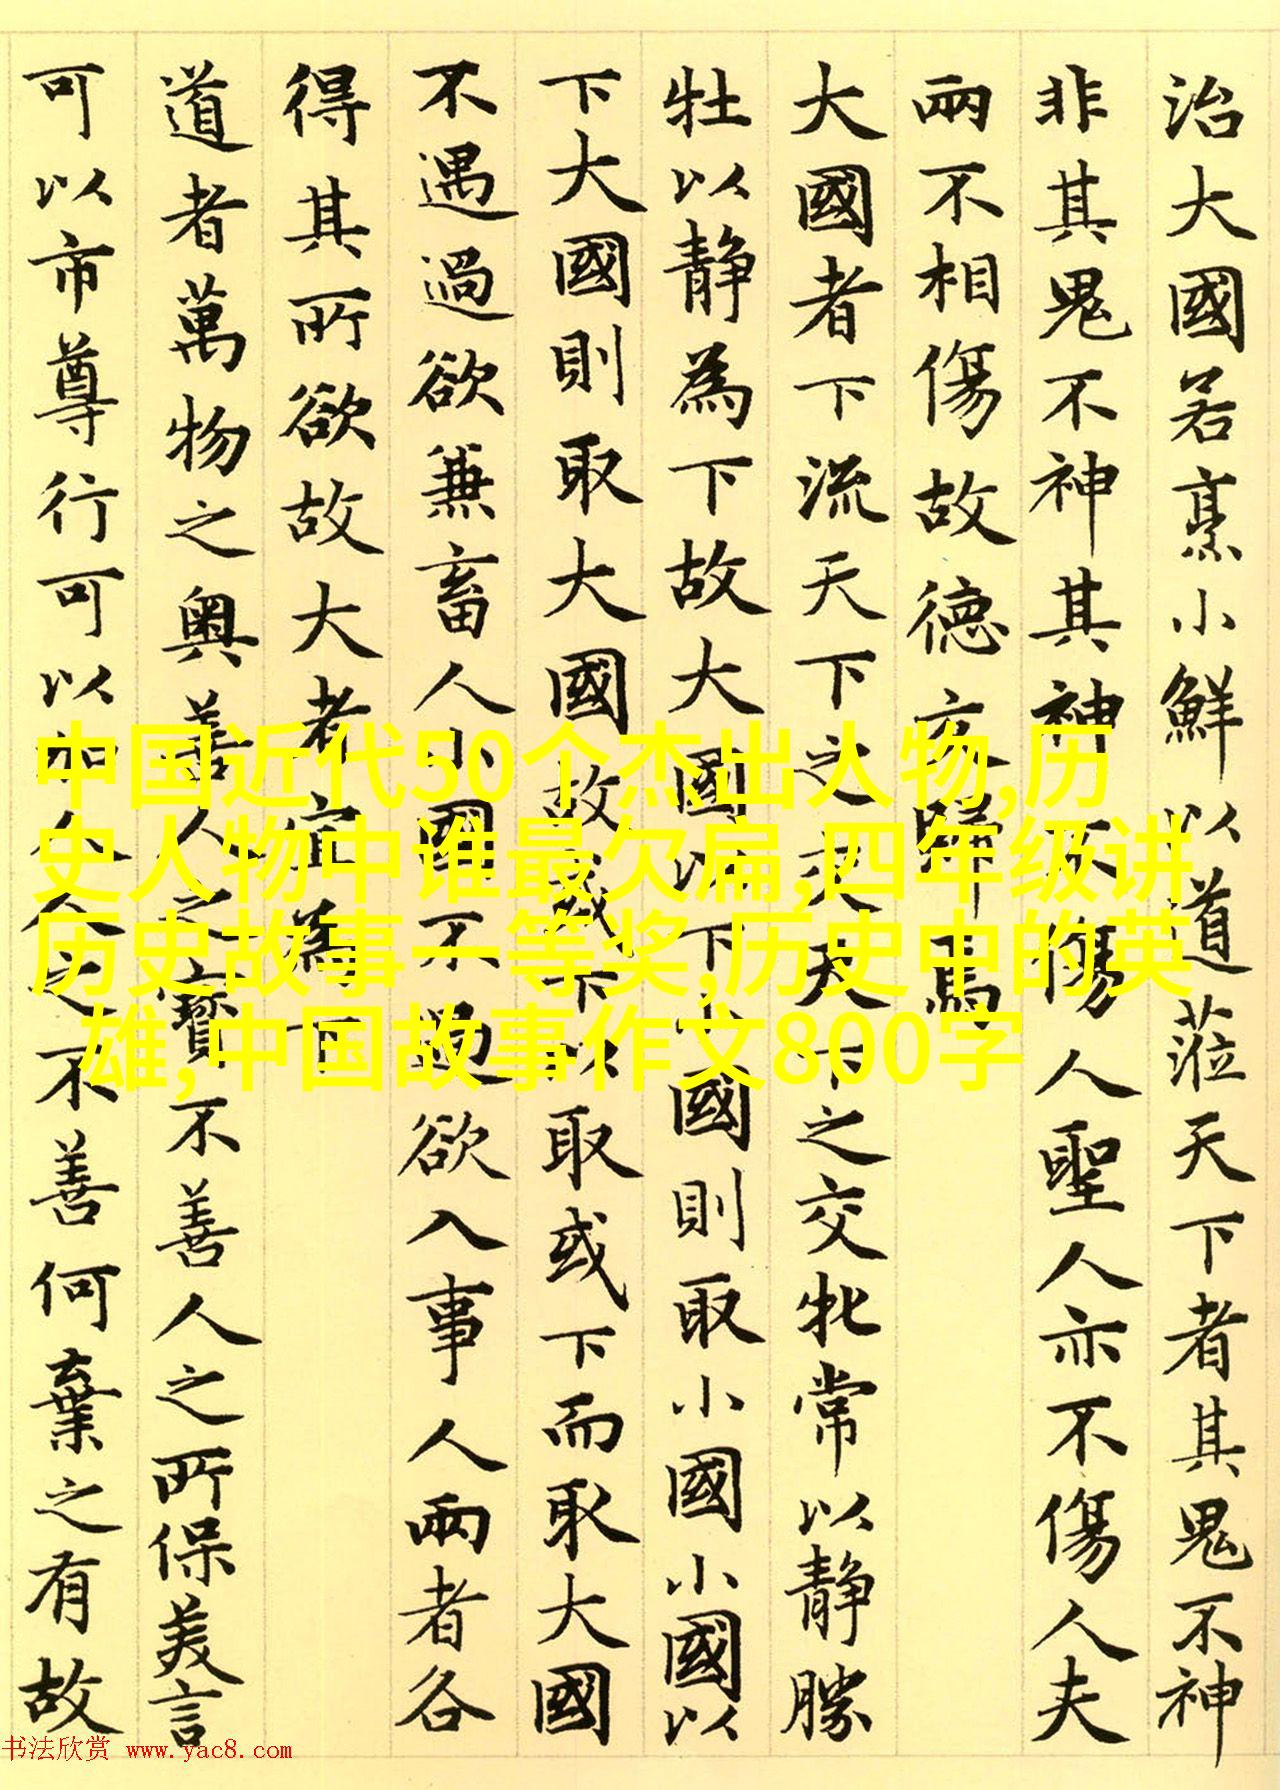 治大國若烹小鮮以道蒞天下者其鬼不神
非其鬼不神其神不傷人聖人亦不傷人夫
兩不相傷故德交歸焉
大國者下流天下之交天下之交牝常以静勝
牡以静為下故大國以下小國則取小國小國以
下大國則取大國故或下以取或下而取大國
不遇過欲兼畜人小國不過欲入事人兩者各
得其所欲故大者宜為下
道者萬物之奥善人之寶不善人之所保美言
可以市尊行可以加人人之不善何棄之有故
中国近代50个杰出人物,历
史人物中谁最欠扁,四年级讲
历史故事一等奖,历史中的英
雄,中国故事作文800字
书法欣赏 www.yac8.com